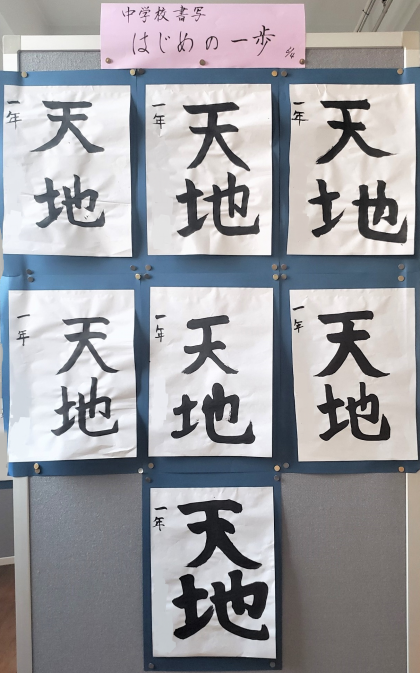 中学校書写
はじめの一歩
一年
天地
一年
天地
一年
天地
一年
天地
一年
天地
一年
天地
一年
天地